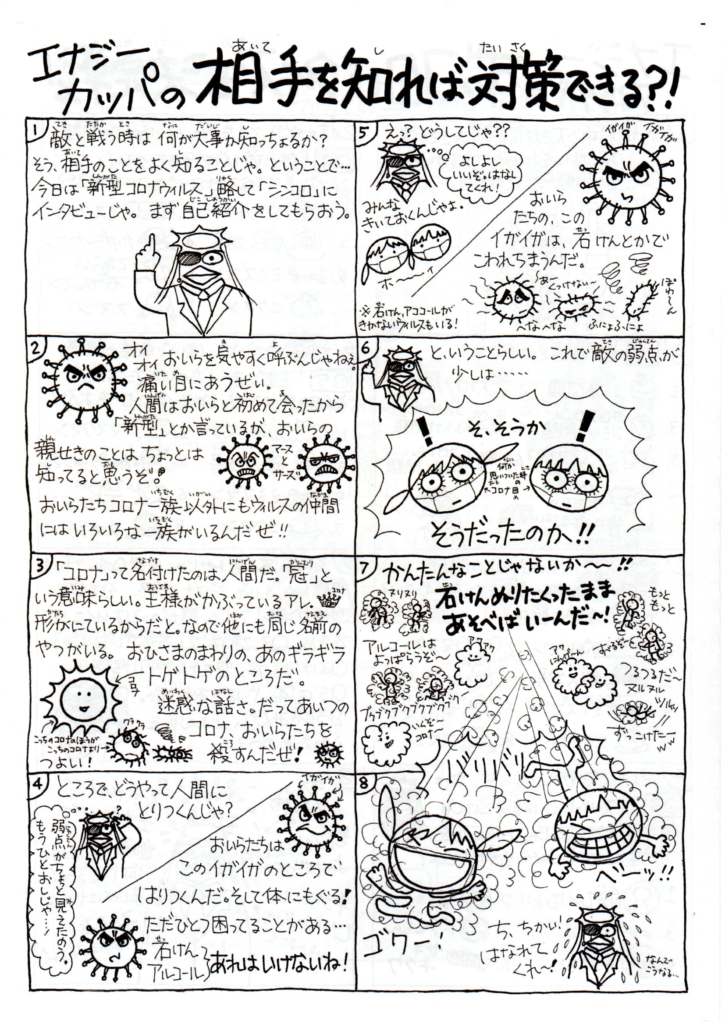 エナジーカッパの 相手を知れば対策できる?!
あいて
し
たいさく
1
敵と戦う時は 何が大事か知っちょるか?
そう、相手のことをよく知ることじゃ。ということで…
今日は「新型コロナウィルス」略して「シンコロ」に
インタビューじゃ。まず自己紹介をしてもらおう。
2
オイオイ おいらを見やすく呼ぶんじゃねぇ。
痛い目にあうぜい。
人間はおいらと初めて会ったから
「新型」とか言っているが、おいらの
親せきのことは、ちょっとは
知ってると思うぞ!
マーズとサーズ
おいらたちコロナ一族以外にもウィルスの仲間
にはいろいろな一族がいるんだぜ!!
3
「コロナ」って名付けたのは人間だ。「冠」と
いう意味らしい。王様がかぶっているアレ。
形がにているからだと。なので他にも同じ名前の
やつがいる。おひさまのまわりの、あのギラギラ
トゲトゲのところだ。
コロナ
迷惑な話さ。だってあいつの
コロナ、おいらたちを
殺すんだぜ!
こっちのコロナのほうが
こっちのコロナより
つよい!
クラクラ
4
ところで、どうやって人間に
とりつくんじゃ?
弱点がちょっと見えたのう。
もうひとおしじゃ…
イガイガ
おいらたちは
このイガイガのところで
はりつくんだ。そして体にもぐる!
ただひとつ困ってることがある…
石けん
アルコール
あれはいけないね!
5
えっ?どうしてじゃ??
よしよし
いいぞ。はなし
てくれ!
みんな
きいておくんじゃよ。
ホーーイ
※石けん、アルコールが
きかないウィルスもいる!
イガイガ イガイガ
おいら
たちの、この
イガイガは、石けんとかで
こわれちまうんだ。
あー
くっつけない〜
ぽわ〜ん
へなへな
ふにょふにょ
6
と、いうことらしい。これで敵の弱点が
少しは……
そ、そうか
何か
思いついた時の
コロナ目
そうだったのか!!
7
かんたんなことじゃないか〜!!
石けんぬりたくったまま
あそべばいーんだ〜!
ヌリヌリ
もっと
もっと
アルコールは
よっぱらうぞ〜
アワアワ
つるつるだ〜
ヌルヌル
ツルッ
ブクブクブクブクブク
ずっこけたー
バリバリ
8
ベーッ!!
ゴワー!
ち、ちかい!
はなれて
くれ〜!
なんで
こうなる…